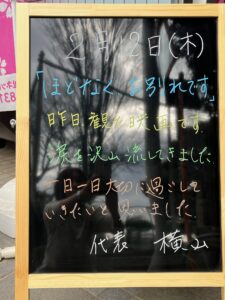 2月12日(木)
「ほどなく、お別れです」
昨日観た映画です。
涙を沢山流してきました。
一日一日大切に過ごして
いきたいと思いました。
代表 横山